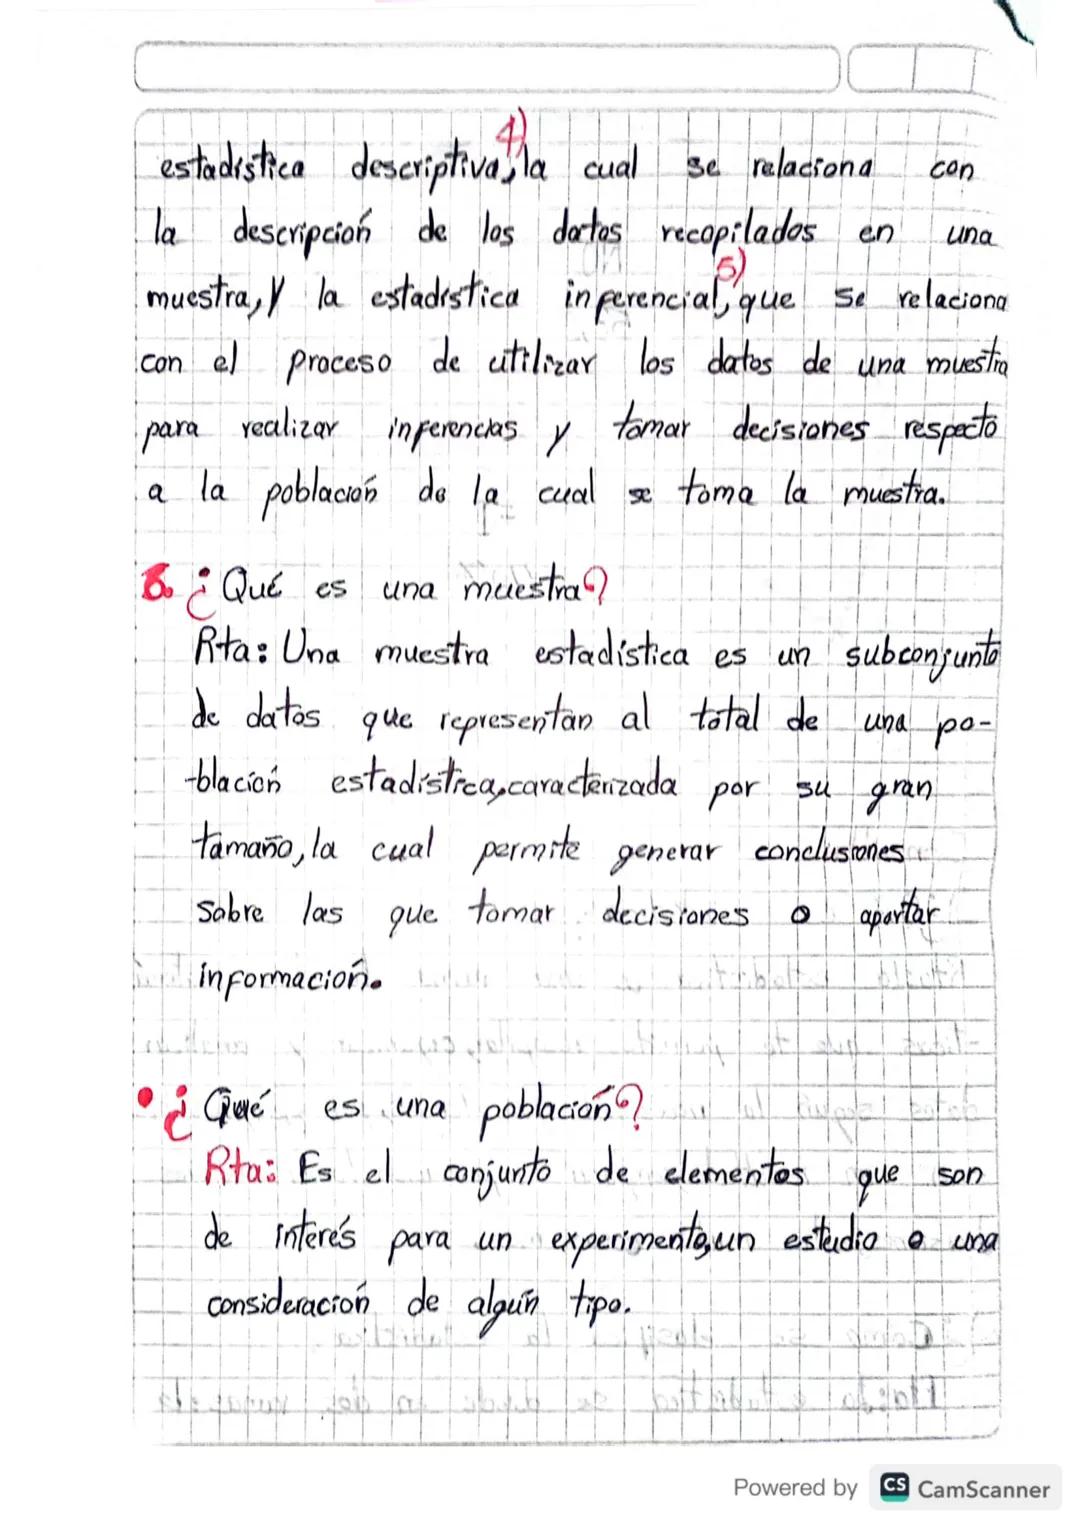 4)
estadística descriptiva, la cual se relaciona con
la descripción de los datos recopilados en una
5)
muestra, y la estadística inferencial, que se relaciona
con el proceso de utilizar los datos de una muestra
para realizar inferencias y tomar decisiones respecto
a la población de la cual se toma la muestra.
6. ¿Qué es una muestra?
Rta: Una muestra estadística es un subconjunto
de datos que representan al total de una po-
-blación estadística, caracterizada por su gran
tamaño, la cual permite generar conclusiones
sobre las que tomar decisiones o aportar
información.
• ¿Qué es una población?
Rta: Es el conjunto de elementos que son
de interés para un experimento, un estudio o una
consideración de algún tipo.
Powered by CS CamScanner